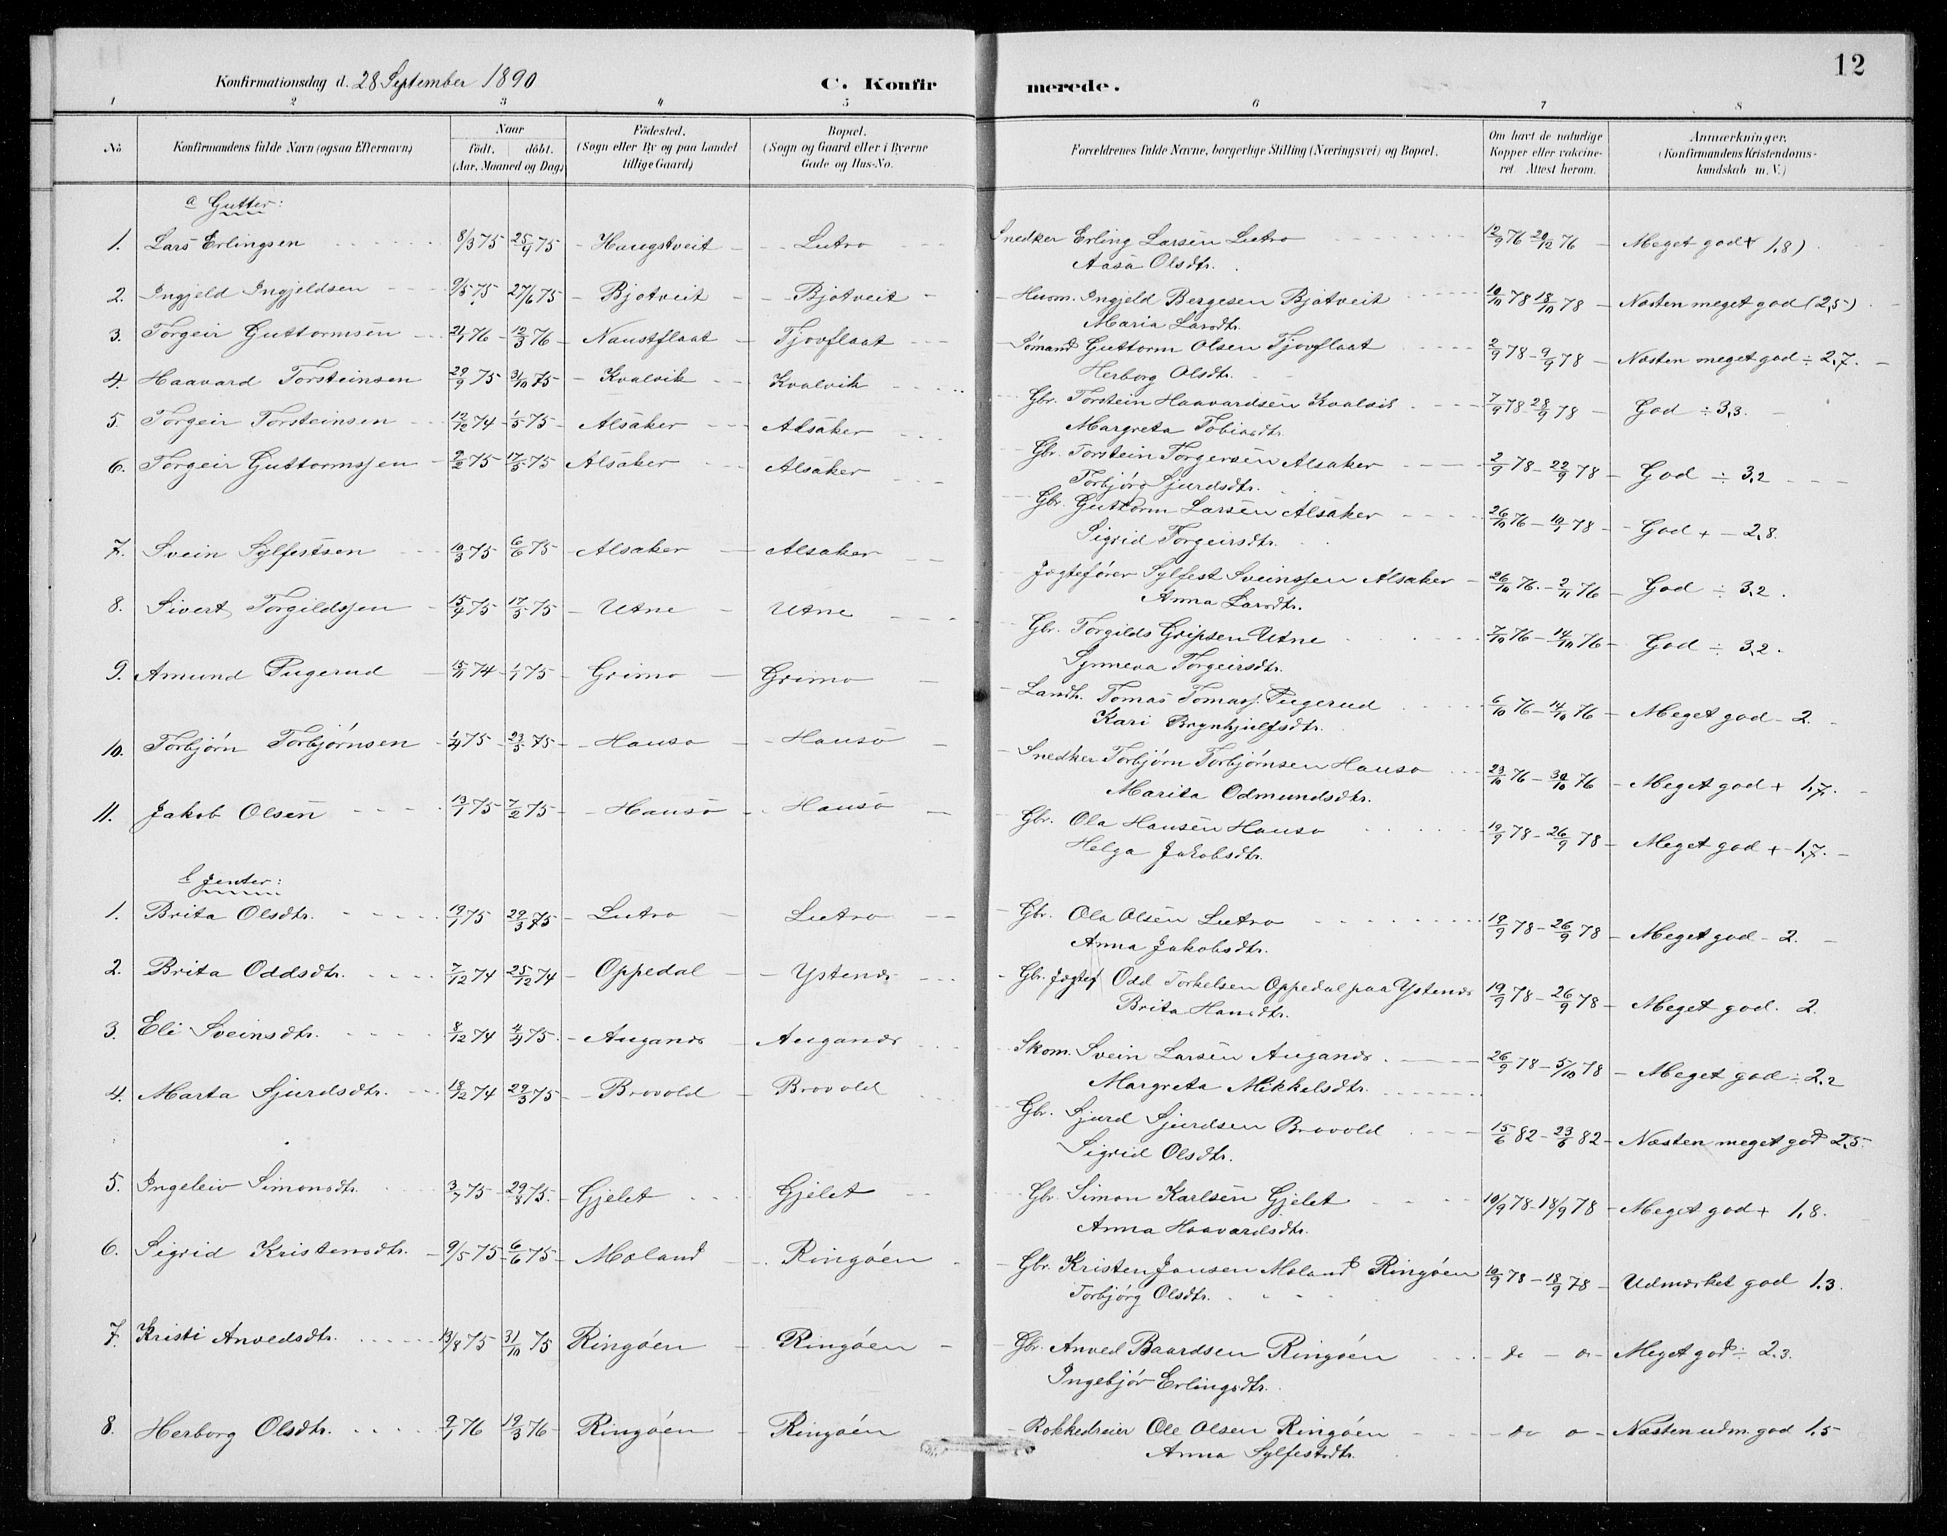 12
Konfirmationsdag d. 28 September 1890
C. Konfir merede.
1 2 3 4 5 6 7 8
No
Konfirmandens fulde Navn (ogsaa Efternavn)
Naar
født. døbt.
(Aar, Maaned og Dag)
Fødested.
(Sogn eller By og paa Landet
tillige Gaard)
Bopæl.
(Sogn og Gaard eller i Byerne
Gade og Hus-No.
Forældrenes fulde Navne, borgerlige Stilling (Næringsvei) og Bopæl.
Om havt de naturlige
Kopper eller vakcine-
ret Attest herom.
Anmærkninger.
(Konfirmandens Kristendoms-
kundskab m. V.)
a Gutter:
1. Lars Erlingsen 8/3 75 25/9 75 Haugstveit Lutro Snedker Erling Larsen Lutro 12/9 76 20/12 76 Meget god + 1,8)
Aasa Olsdtr.
2. Ingjeld Ingjeldsen 9/5 75 27/6 75 Bjotveit Bjotveit Husm. Ingjeld Bergesen Bjotveit 10/10 78 18/10 78 Næsten meget god (2,5)
Maria Larsdtr.
3. Torgeir Guttormsen 21/1 76 12/3 76 Naustflaat Tjovflaat Sømand Guttorm Olsen Tjovflaat 2/9 78 - 9/9 78 Næsten meget god ÷ 2,7.
Herborg Olsdtr.
4. Haavard Torsteinsen 29/9 75 31/10 75 Kvalvik Kvalvik Gbr. Torstein Haavardsen Kvalvik 7/9 78 - 28/9 78 God ÷ 3,3.
Margreta Tobiasdtr.
5 Torgeir Torsteinsen 12/12 74 1/5 75 Alsaker Alsaker Gbr. Torstein Torgersen Alsaker 2/9 78 - 22/9 78 God ÷ 3,2
Torbjørg Sjurdsdtr.
6. Torgeir Guttormssen 2/2 75 17/5 75 Alsaker Alsaker Gbr. Guttorm Larsen Alsaker 26/10 76 - 10/1 78 God + - 2,8.
Sigrid Torgeirsdtr.
7. Svein Sylfestsen 10/3 75 6/6 75 Alsaker Alsaker Jægtefører Sylfest Sveinssen Alsaker 26/10 76. - 2/11 76 God ÷ 3,2.
Anna Larsdtr.
8. Sivert Torgildssen 15/4 75 17/5 75 Utne Utne Gbr. Torgilds Gripsen Utne 7/10 76 - 14/10 76 God ÷ 3,2.
Synneva Torgeirsdtr.
9. Amund Pugerud 15/11 74 1/1 75 Grimo Grimo Landh. Tomas Tomass. Pugerud 6/10 76 - 14/10 76 Meget god - 2.
Kari Brynhjulfsdtr.
10. Torbjørn Torbjørnsen 1/4 75 23/5 75 Hauso Hauso Snedker Torbjørn Torbjørnsen Hauso 23/10 76 - 30/10 76 Meget god + 1,7.
Marita Odmundsdtr.
11. Jakob Olsen 13/1 75 7/2 75 Hauso Hauso Gbr. Ola Hansen Hauso 19/9 78 - 26/9 78 Meget god + 1,7.
Helga Jakobsdtr.
b Jenter:
1. Brita Olsdtr. 19/1 75 29/3 75 Lutro Lutro Gbr. Ola Olsen Lutro 19/9 78 - 26/9 78 Meget god - 2.
Anna Jakobsdtr.
2. Brita Oddsdtr. 7/12 74 25/12 74 Oppedal Ystenæs Gbr. Jægtef Odd Torkelsen Oppedal paa Ystenæs 19/9 78 - 26/9 78 Meget god. 2.
Brita Hansdtr.
3. Eli Sveinsdtr. 8/12 74 4/4 75. Auganæs Auganæs Skom. Svein Larsen Auganæs 26/9 78 - 5/10 78 Meget god ÷ 2,2
Margreta Mikkelsdtr.
4. Marta Sjurdsdtr. 18/12 74 29/3 75 Brovold Brovold Gbr. Sjurd Sjurdsen Brovold 15/6 82 - 23/6 82 Næsten meget god 2,5.
Sigrid Olsdtr.
5. Ingeleiv Simonsdtr. 3/7 75 29/8 75. Gjelet Gjelet Gbr. Simon Karlsen Gjelet 10/9 78 - 18/9 78 Meget god + 1,8.
Anna Haavardsdtr.
6. Sigrid Kristensdtr. 9/5 75 6/6 75 Moland Ringøen Gbr. Kristen Jansen Moland Ringøen 10/9 78 - 18/9 78 Udmærket god 1.3
Torbjørg Olsdtr.
7. Kristi Anvedsdtr. 13/8 75 31/10 75 Ringøen Ringøen Gbr. Anved Baardsen Ringøen do - o Meget god ÷ 2.3.
Ingebjør Erlingsdtr.
8. Herborg Olsdtr. 9/1 76 19/3 76 Ringøen Ringøen Rokkedreier Ole Olsen Ringøen do o Næsten udm. god 1,5
Anna Sylfestsdtr.